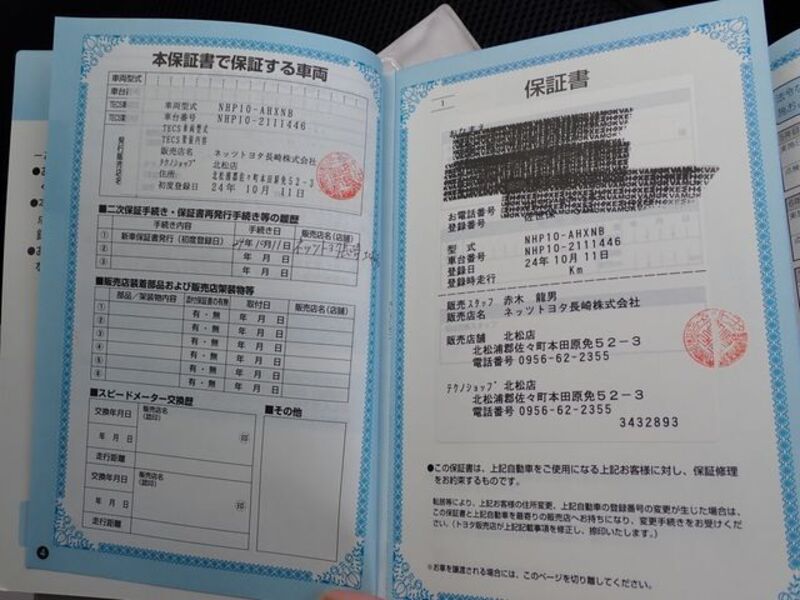 本保証書で保証する車両
車両型式
車台
TECS車
TECS車
車両型式 NHP10-AHXNB
車台番号 NHP10-2111446
TECS車両型式
TECS架装内容
発行販売店名
販売店名 ネッツトヨタ長崎株式会社
テクノショップ 北松店
住所: 北松浦郡佐々町本田原免52-3
初度登録日 24年 10月 11日
■二次保証手続き・保証書再発行手続き等の履歴
手続き内容 手続き日 販売店名(店舗)
① 新車保証書発行(初度登録日) 24年10月11日 ネッツトヨタ長崎
② 年 月 日
③ 年 月 日
■販売店装着部品および販売店架装物等
部品/架装物内容 添付保証書の有無 取付日 販売店名(店舗)
① 有・無 年 月 日
② 有・無 年 月 日
③ 有・無 年 月 日
④ 有・無 年 月 日
⑤ 有・無 年 月 日
⑥ 有・無 年 月 日
■スピードメーター交換歴
■その他
交換年月日 販売店名(認印)
年 月 日 印
走行距離
交換年月日 販売店名(認印)
年 月 日 印
走行距離
4
保証書
1
おなまえ
お電話番号
登録番号 佐世保
型式 NHP10-AHXNB
車台番号 NHP10-2111446
登録日 24年 10月 11日
登録時走行 Km
販売スタッフ 赤木 龍男
販売店名 ネッツトヨタ長崎株式会社
販売店舗 北松店
北松浦郡佐々町本田原免52-3
電話番号 0956-62-2355
テクノショップ 北松店
北松浦郡佐々町本田原免52-3
電話番号 0956-62-2355
3432893
●この保証書は、上記自動車をご使用になる上記お客様に対し、保証修理
をお約束するものです。
転居等により、上記お客様の住所変更、上記自動車の登録番号の変更が生じた場合は、
この保証書と上記自動車を最寄りの販売店へお持ちになり、変更手続きをお受けくだ
さい。(トヨタ販売店が上記記載事項を修正し、捺印いたします。)
※お車を譲渡される場合には、このページを切り離してください。